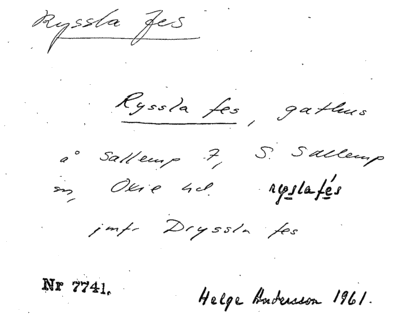 Ryssla fes
Ryssla fes, gathus
å Sallerup 7, S. Sallerup
sn, Oxie hd. ryslafés
jmfr Dryssla fes
Nr 7741.
Helge Andersson 1961.